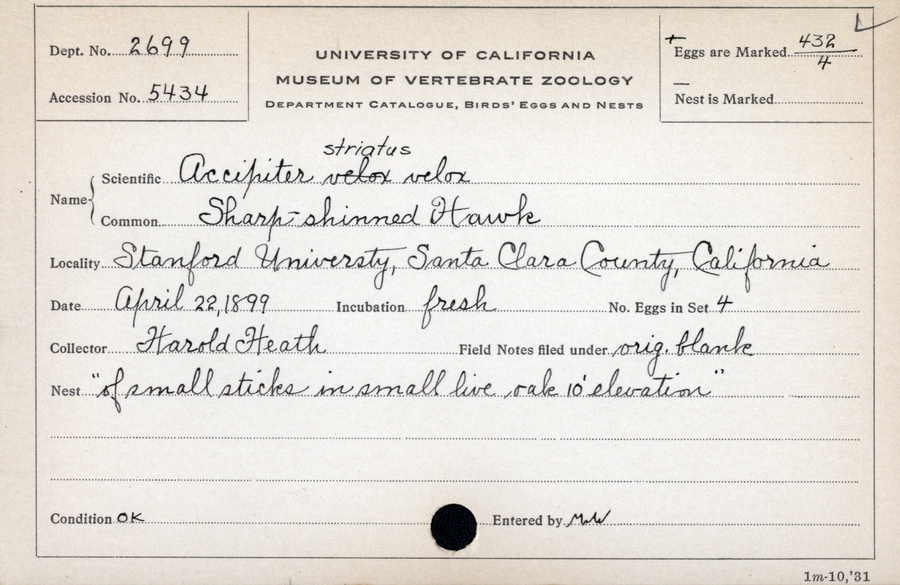 Dept. No. 2699
Accession No. 5434
UNIVERSITY OF CALIFORNIA
MUSEUM OF VERTEBRATE ZOOLOGY
DEPARTMENT CATALOGUE, BIRDS' EGGS AND NESTS
+ Eggs are Marked 432/4
— Nest is Marked
striatus
Name { Scientific Accipiter velox velox
Common Sharp-shinned Hawk
Locality Stanford Universty, Santa Clara County, California
Date April 22, 1899 Incubation fresh No. Eggs in Set 4
Collector Harold Heath Field Notes filed under orig. blank
Nest "of small sticks in small live oak 10' elevation"
Condition OK Entered by MW
1m-10,'31